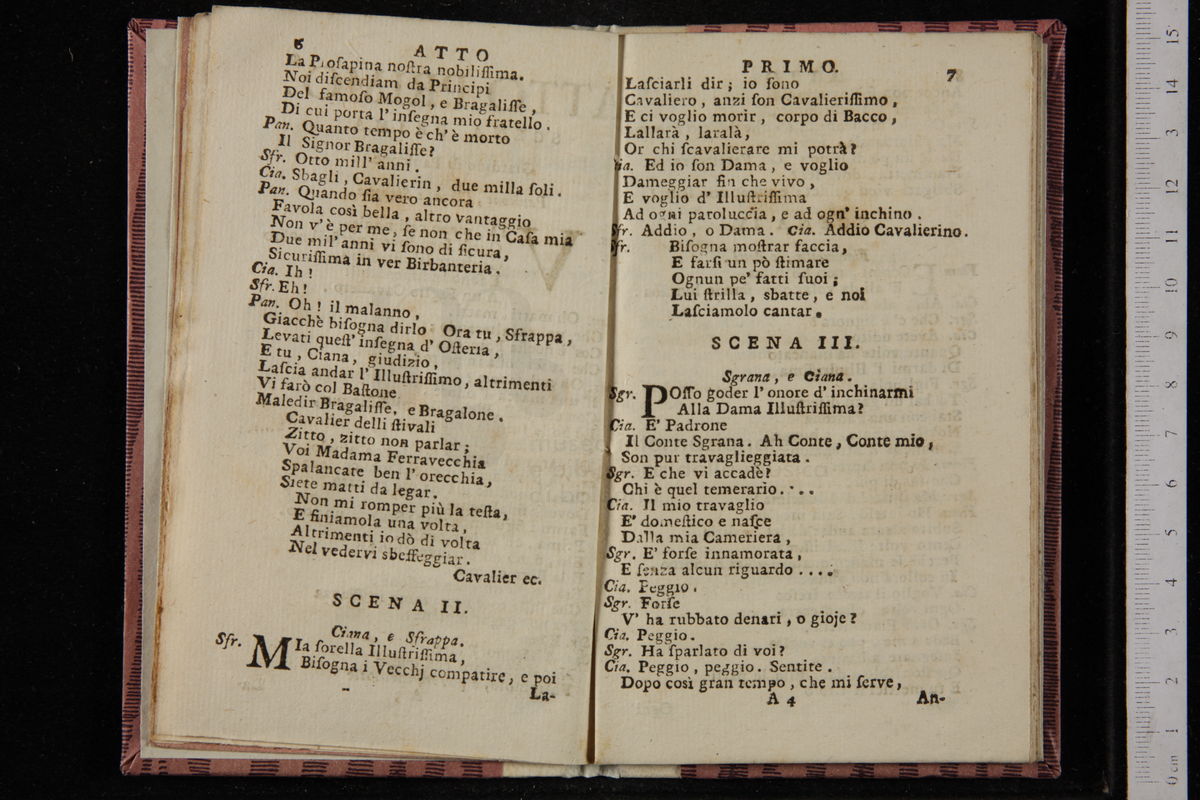 6 ATTO
La Prosapina noſtra nobiliſſima.
Noi diſcendiam da Principi
Del famoſo Mogol, e Bragaliſſe,
Di cui porta l' inſegna mio fratello.
Pan. Quanto tempo è ch' è morto
Il Signor Bragaliſſe?
Sfr. Otto mill' anni.
Cia. Sbagli, Cavalierin, due milla ſoli.
Pan. Quando ſia vero ancora
Favola così bella, altro vantaggio
Non v' è per me, ſe non che in Caſa mia
Due mil' anni vi ſono di ſicura,
Sicuriſſima in ver Birbanteria.
Cia. Ih!
Sfr. Eh!
Pan. Oh! il malanno,
Giacchè biſogna dirlo. Ora tu, Sfrappa,
Levati queſt' inſegna d' Oſteria,
E tu, Ciana, giudizio,
Laſcia andar l' Illuſtriſſimo, altrimenti
Vi farò col Baſtone
Maledir Bragaliſſe, e Bragalone.
Cavalier delli ſtivali
Zitto, zitto non parlar;
Voi Madama Ferravecchia
Spalancate ben l' orecchia,
Siete matti da legar.
Non mi romper più la teſta,
E finiamola una volta,
Altrimenti io dò di volta
Nel vedervi sbeffeggiar.
Cavalier ec.
SCENA II.
Ciana, e Sfrappa.
Sfr. MIa ſorella Illuſtriſſima,
Biſogna i Vecchj compatire, e poi
La-
PRIMO. 7
Laſciarli dir; io ſono
Cavaliero, anzi ſon Cavalieriſſimo,
E ci voglio morir, corpo di Bacco,
Lallarà, laralà,
Or chi ſcavalierare mi potrà?
Cia. Ed io ſon Dama, e voglio
Dameggiar fin che vivo,
E voglio d' Illuſtriſſima
Ad ogni paroluccia, e ad ogn' inchino.
Sfr. Addio, o Dama. Cia. Addio Cavalierino.
Sfr. Biſogna moſtrar faccia,
E farſi un pò ſtimare
Ognun pe' fatti ſuoi;
Lui ſtrilla, sbatte, e noi
Laſciamolo cantar.
SCENA III.
Sgrana, e Ciana.
Sgr. POſſo goder l' onore d' inchinarmi
Alla Dama Illuſtriſſima?
Cia. E' Padrone
Il Conte Sgrana. Ah Conte, Conte mio,
Son pur travaglieggiata.
Sgr. E che vi accadè?
Chi è quel temerario....
Cia. Il mio travaglio
E' domeſtico e naſce
Dalla mia Cameriera,
Sgr. E' forſe innamorata,
E ſenza alcun riguardo....
Cia. Peggio.
Sgr. Forſe
V' ha rubbato denari, o gioje?
Cia. Peggio.
Sgr. Ha ſparlato di voi?
Cia. Peggio, peggio. Sentite.
Dopo così gran tempo, che mi ſerve,
A 4 An-